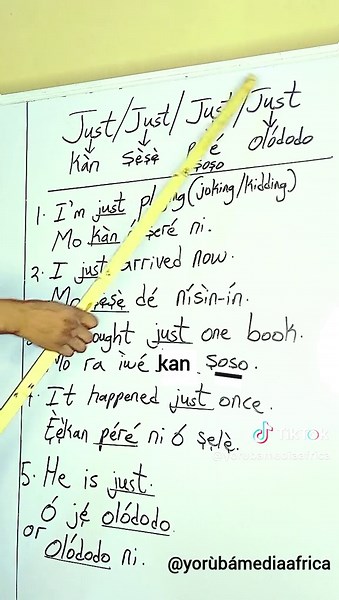 Just/Just/Just/Just
Kàn Ṣẹ̀ṣẹ̀ ṣoṣo Olódodo
1. I'm just (joking/kidding)
Mo kàn ṣeré ni.
2. I just arrived now.
Mo dé nísìn-ín.
just one book.
Mo ra ìwé kan ṣoṣo.
4. It happened just once.
Ẹ̀ẹ̀kan péré ni ó ṣẹlẹ̀.
5. He is just.
Ó jẹ́ olódodo.
or
Olódodo ni.
TikTok
@yorubamediaafrica
@yorùbámediaafrica